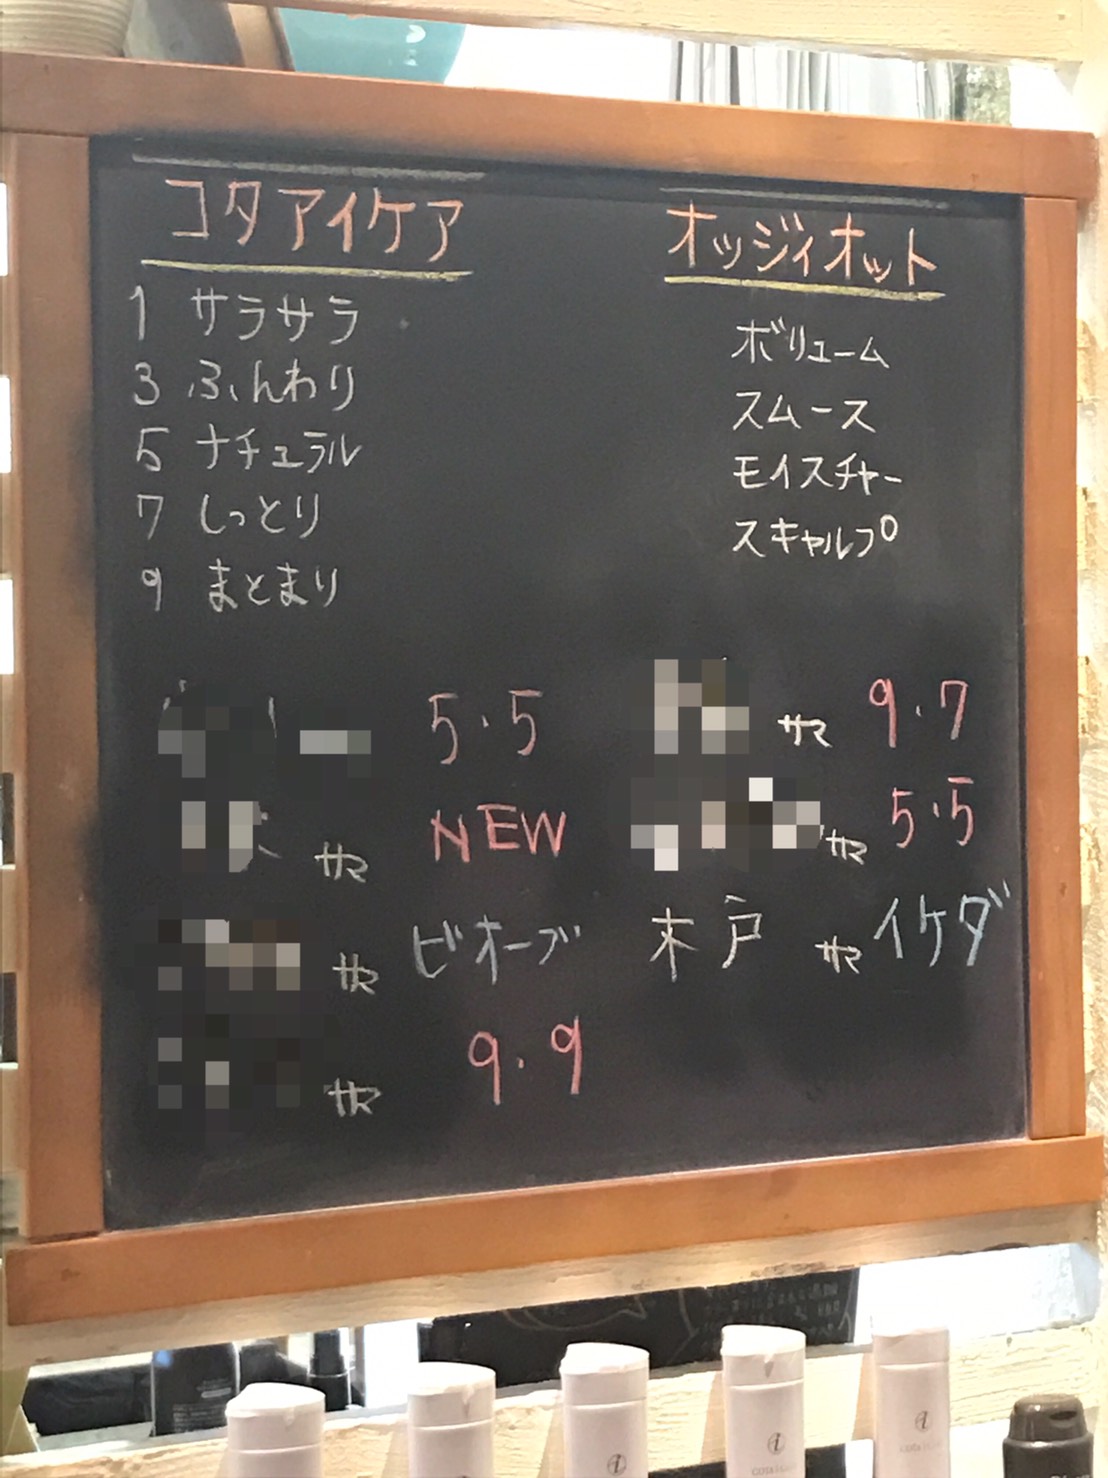 コタアイケア
1 サラサラ
3 ふんわり
5 ナチュラル
7 しっとり
9 まとまり
オッジィオット
ボリューム
スムース
モイスチャー
スキャルプ
5.5
サマ NEW
サマ ビオーブ
サマ 9.9
サマ 9.7
サマ 5.5
木戸 サマ イケダ
i
i
i